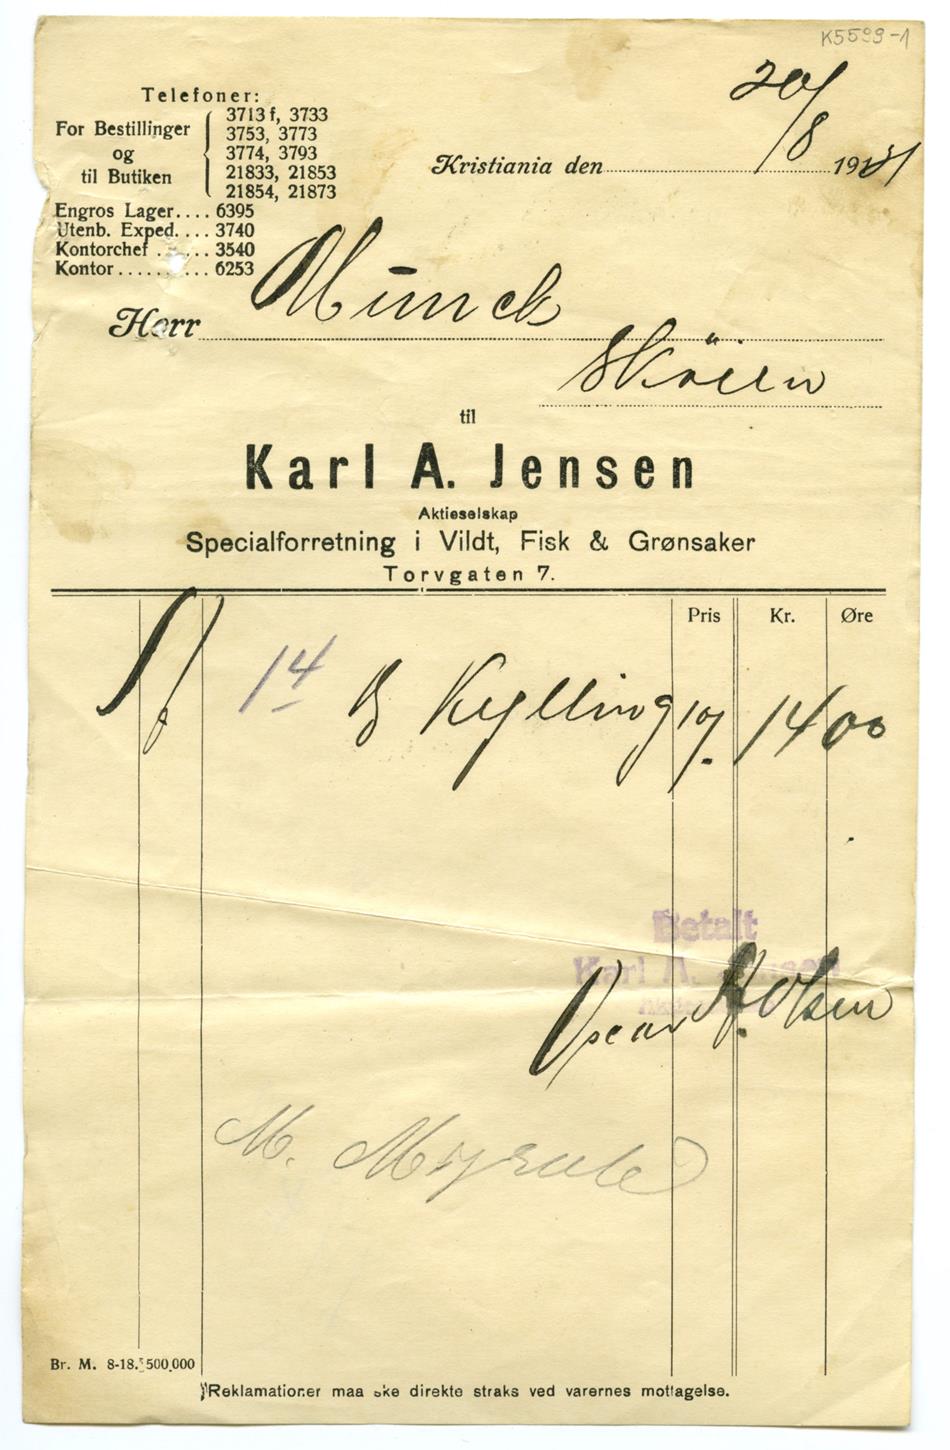 K5599-1
Telefoner:
For Bestillinger og til Butiken
3713 f, 3733
3753, 3773
3774, 3793
21833, 21853
21854, 21873
Engros Lager.... 6395
Utenb. Exped.... 3740
Kontorchef ...... 3540
Kontor .......... 6253
20/8
Kristiania den 19
Herr Munck
Sköien
til
Karl A. Jensen
Aktieselskap
Specialforretning i Vildt, Fisk & Grønsaker
Torvgaten 7.
Pris Kr. Øre
14 Kylling 10/. 14 00
Betalt
Karl A. Jensen
Oscar H. Olsen
M.
Br. M. 8-18. 500.000
Reklamationer maa ske direkte straks ved varernes mottagelse.